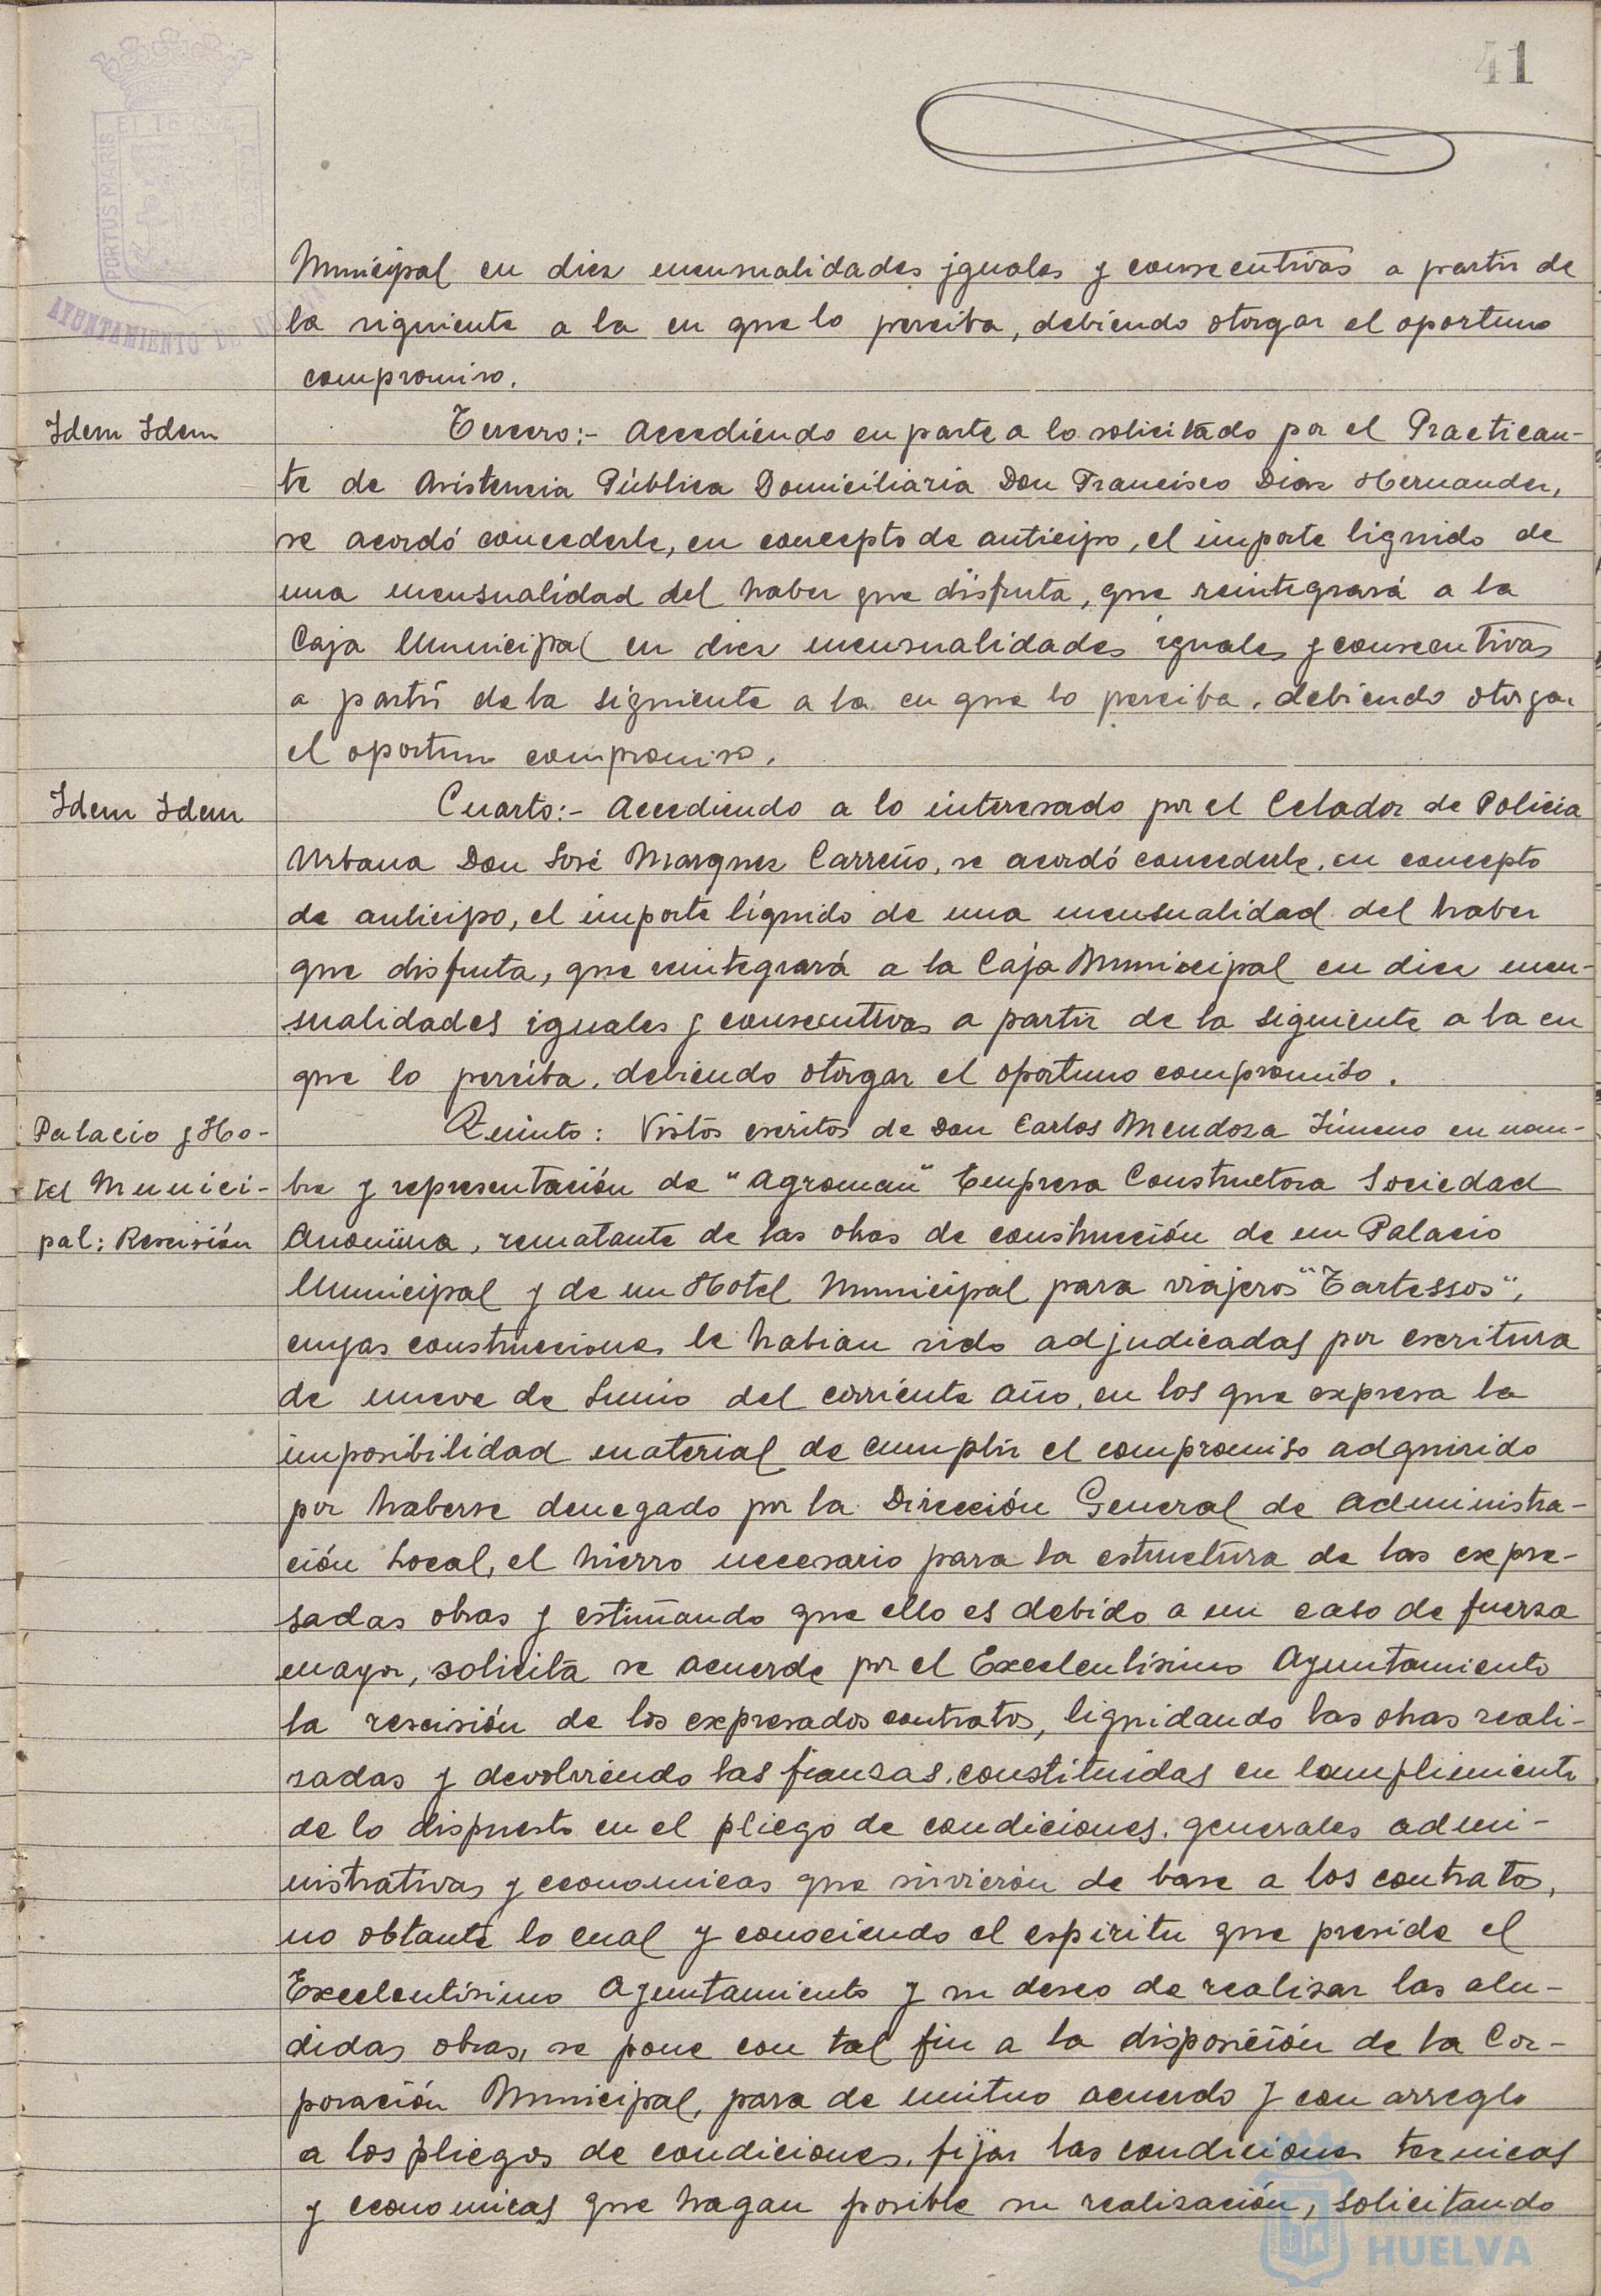 41
PORTUS MARIS
ET TERRÆ
AYUNTAMIENTO DE
Municipal en diez mensualidades iguales y consecutivas a partir de
la siguiente a la en que lo perciba, debiendo otorgar el oportuno
compromiso.
Idem Idem
Tercero:- Accediendo en parte a lo solicitado por el Practican-
te de Asistencia Pública Domiciliaria Don Francisco Diaz Hernandez,
se acordó concederle, en concepto de anticipo, el importe liquido de
una mensualidad del haber que disfruta, que reintegrará a la
Caja Municipal en diez mensualidades iguales y consecutivas
a partir de la siguiente a la en que lo perciba, debiendo otorgar
el oportuno compromiso.
Idem Idem
Cuarto:- Accediendo a lo interesado por el Celador de Policia
Urbana Don José Marquez Carreño, se acordó concederle, en concepto
de anticipo, el importe líquido de una mensualidad del haber
que disfruta, que reintegrará a la Caja Municipal en diez men-
sualidades iguales y consecutivas a partir de la siguiente a la en
que lo perciba, debiendo otorgar el oportuno compromiso.
Palacio y Ho-
tel Munici-
pal: Rescisión
Quinto: Vistos escritos de Don Carlos Mendoza Jimeno en nom-
bre y representación de "Agroman" Empresa Constructora Sociedad
Anonima, rematante de las obras de construcción de un Palacio
Municipal y de un Hotel Municipal para viajeros "Tartessos",
cuyas construcciones le habian sido adjudicadas por escritura
de nueve de Junio del corriente año, en los que expresa la
imposibilidad material de cumplir el compromiso adquirido
por haberse denegado por la Dirección General de Administra-
ción Local, el hierro necesario para la estructura de las expre-
sadas obras y estimando que ello es debido a un caso de fuerza
mayor, solicita se acuerde por el Excelentisimo Ayuntamiento
la rescisión de los expresados contratos, liquidando las obras reali-
zadas y devolviendo las fianzas constituidas en cumplimiento
de lo dispuesto en el pliego de condiciones generales admi-
nistrativas y economicas que sirvierón de base a los contratos,
no obtante lo cual y conociendo el espiritu que preside el
Excelentisimo Ayuntamiento y su deseo de realizar las alu-
didas obras, se pone con tal fin a la disposición de la Cor-
poración Municipal, para de mutuo acuerdo y con arreglo
a los pliegos de condiciones, fijar las condiciones tecnicas
y economicas que hagan posible su realización, solicitando
HUELVA